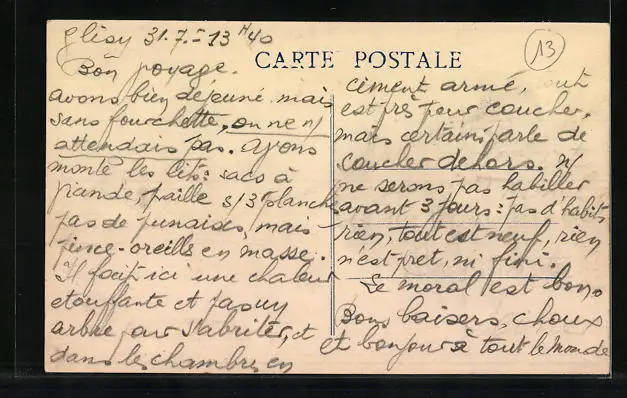 Glisy 31.7.=13 H40
13
CARTE POSTALE
Bon voyage.
avons bien déjeuné, mais
sans fourchette, on ne n/
attendais pas. Avons
monté les lits: sacs à
viande, paille s/ 3 planches
pas de punaises, mais
pince-oreilles en masse.
Il fait ici une chaleur
etouffante et pas un
arbre ou s'abriter, et
dans les chambres, en
ciment armé, tout
est près pour coucher,
mais certains parle de
coucher dehors. n/
ne serons pas habiller
avant 3 jours: pas d'habits
rien, tout est neuf, rien
n'est pret, ni fini.
Le moral est bon.
Bons baisers, choux
et bonjour à tout le monde